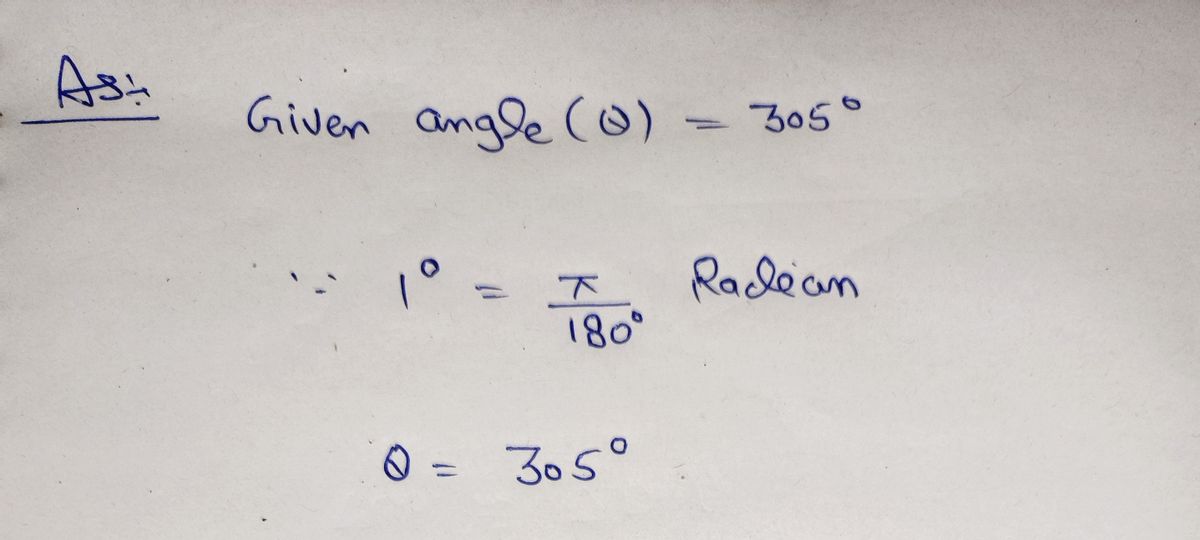 As:-
Given angle (θ) = 305°
∵ 1° = π/180° Radian
θ = 305°